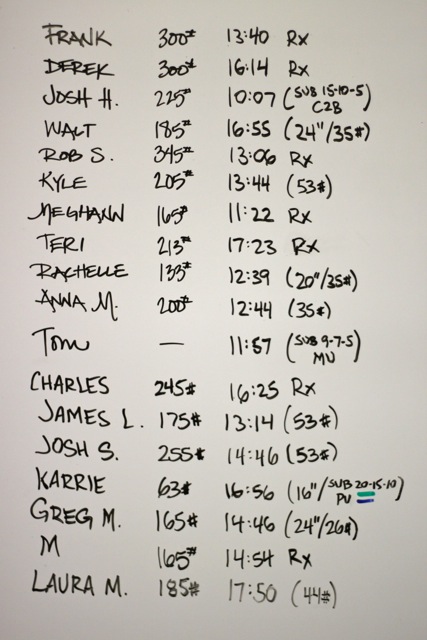 FRANK 300# 13:40 Rx
DEREK 300# 16:14 Rx
JOSH H. 225# 10:07 (SUB 15-10-5 C2B)
WALT 185# 16:55 (24"/35#)
ROB S. 345# 13:06 Rx
KYLE 205# 13:44 (53#)
MEGHANN 165# 11:22 Rx
TERI 213# 17:23 Rx
RACHELLE 133# 12:39 (20"/35#)
ANNA M. 200# 12:44 (35#)
Tom — 11:57 (SUB 9-7-5 MU)
CHARLES 245# 16:25 Rx
JAMES L. 175# 13:14 (53#)
JOSH S. 255# 14:46 (53#)
KARRIE 63# 16:56 (16"/SUB 20-15-10 PU)
GREG M. 165# 14:46 (24"/26#)
M 165# 14:54 Rx
LAURA M. 185# 17:50 (44#)